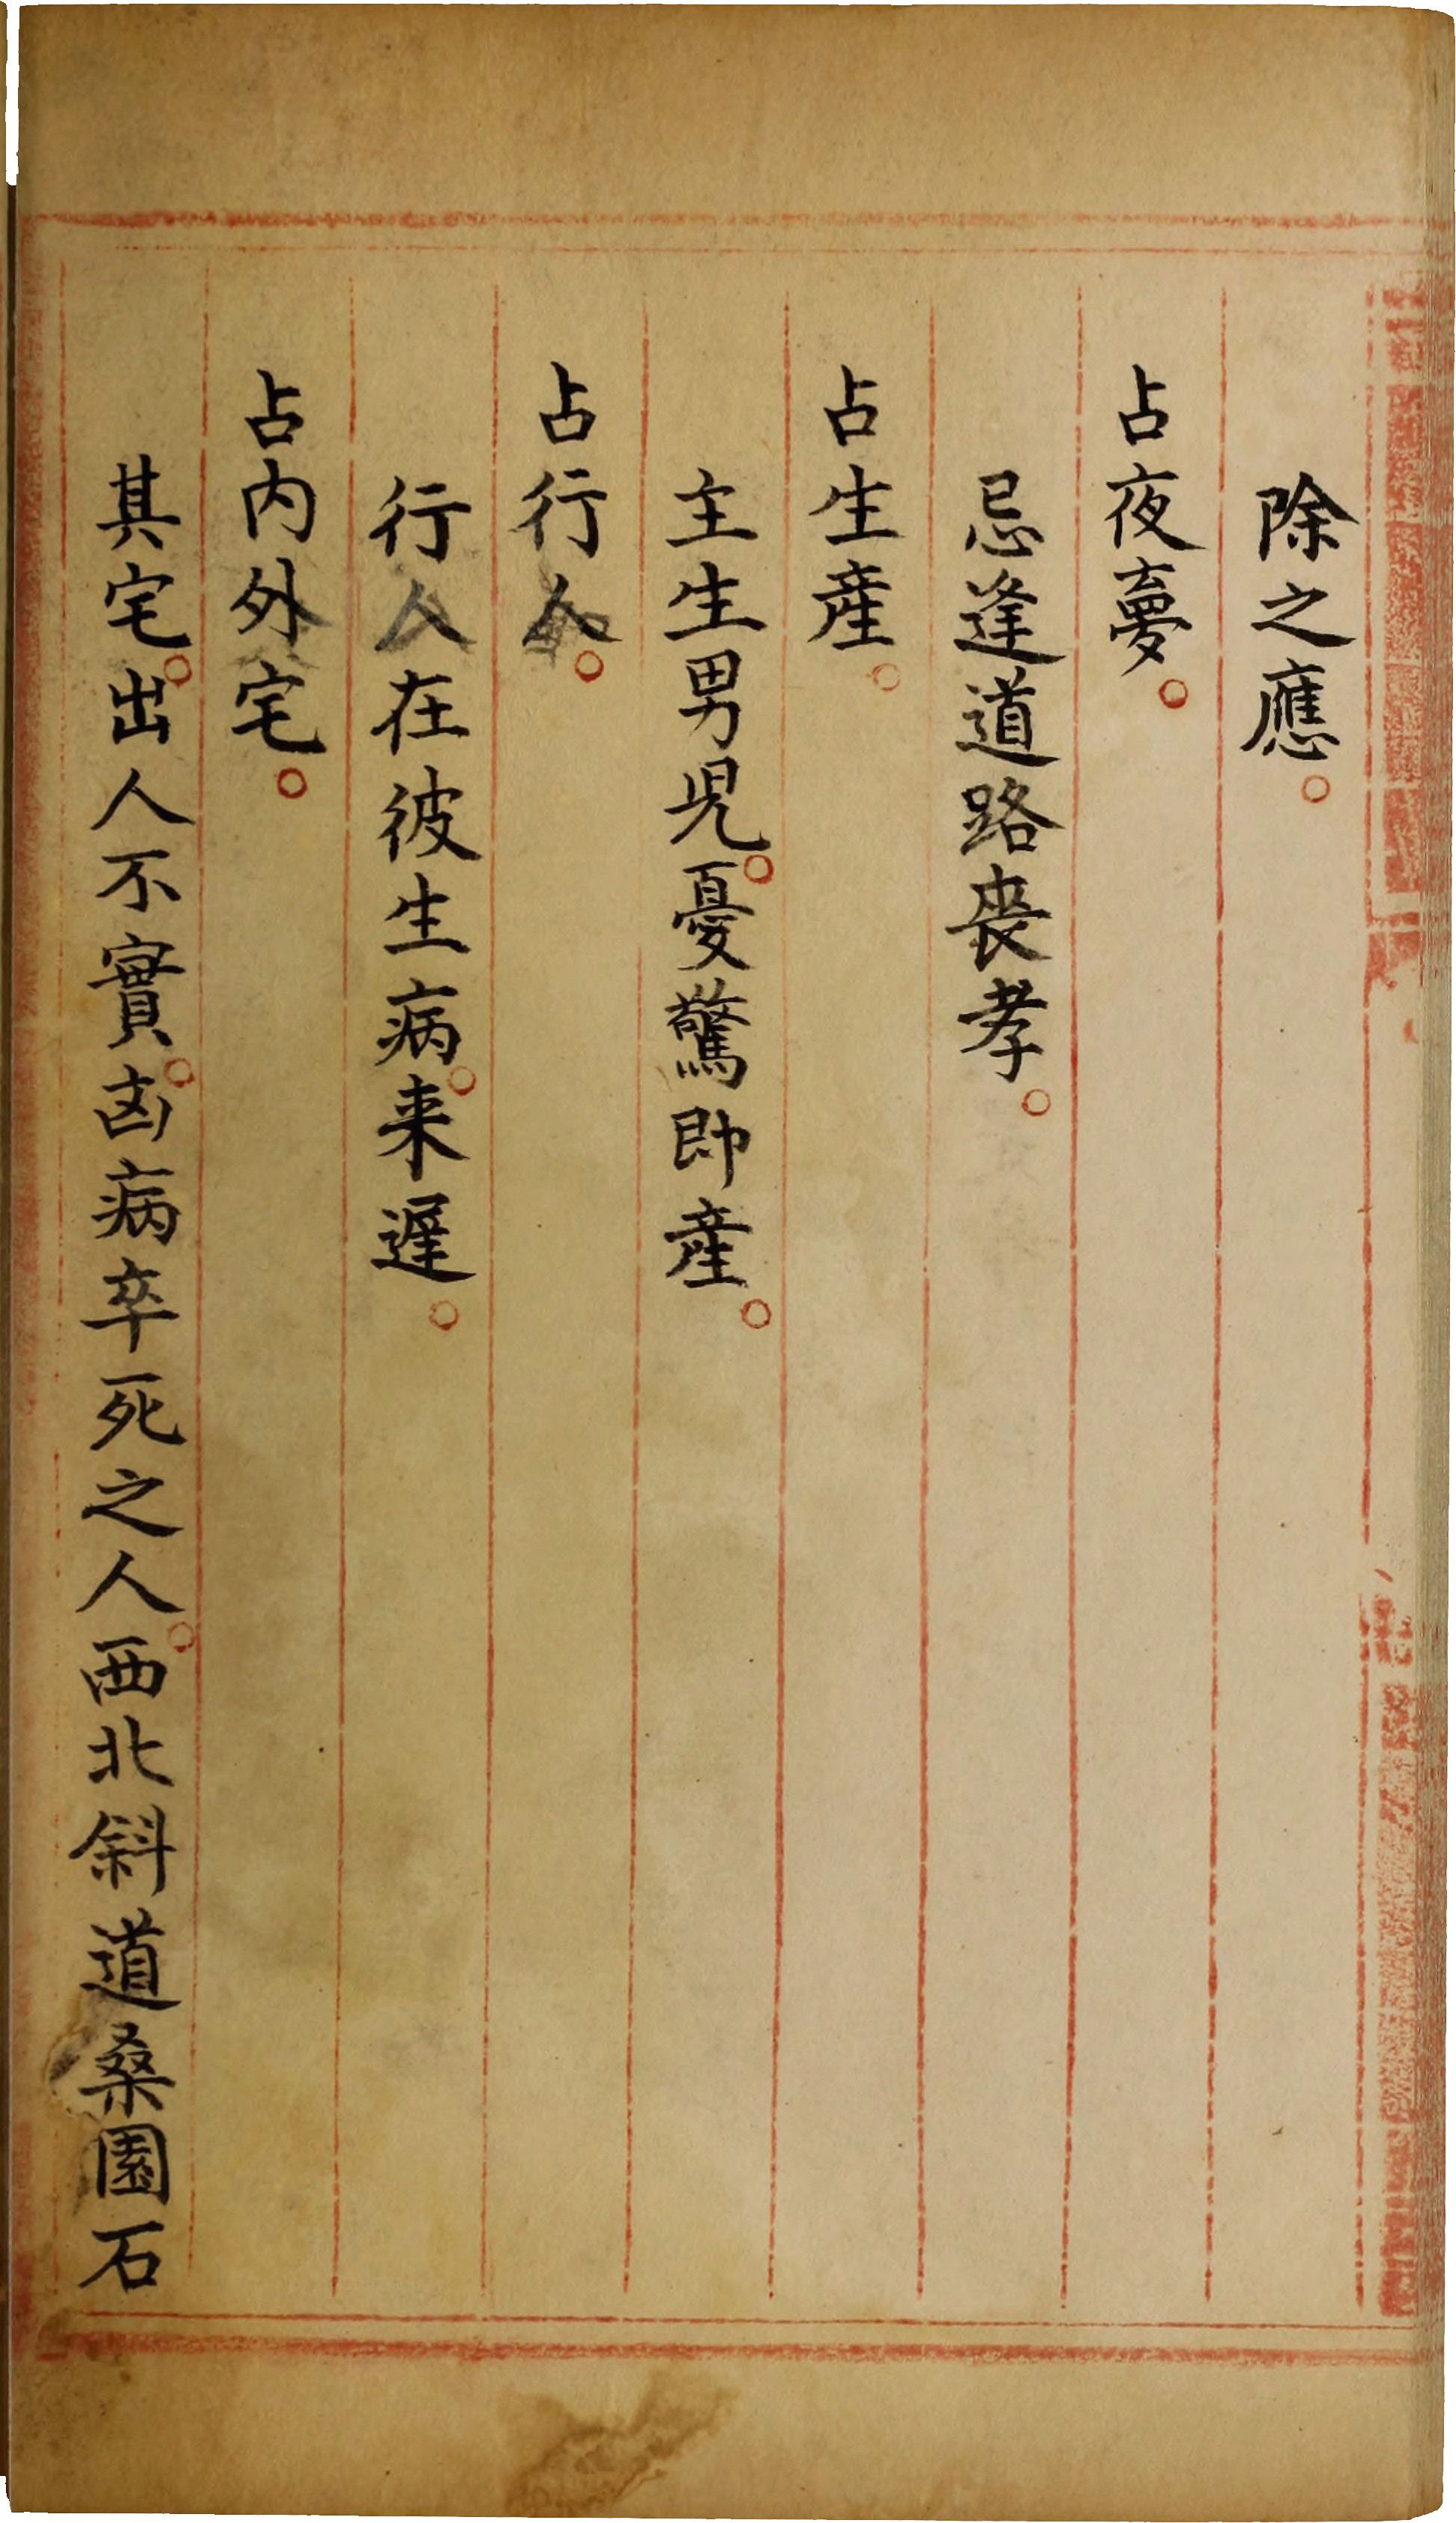 除之應。
占夜夢。
忌逢道路喪孝。
占生產。
主生男児。憂驚即產。
占行人。
行人在彼生病。来遲。
占内外宅。
其宅。出人不實。凶病卒死之人。西北斜道桑園石